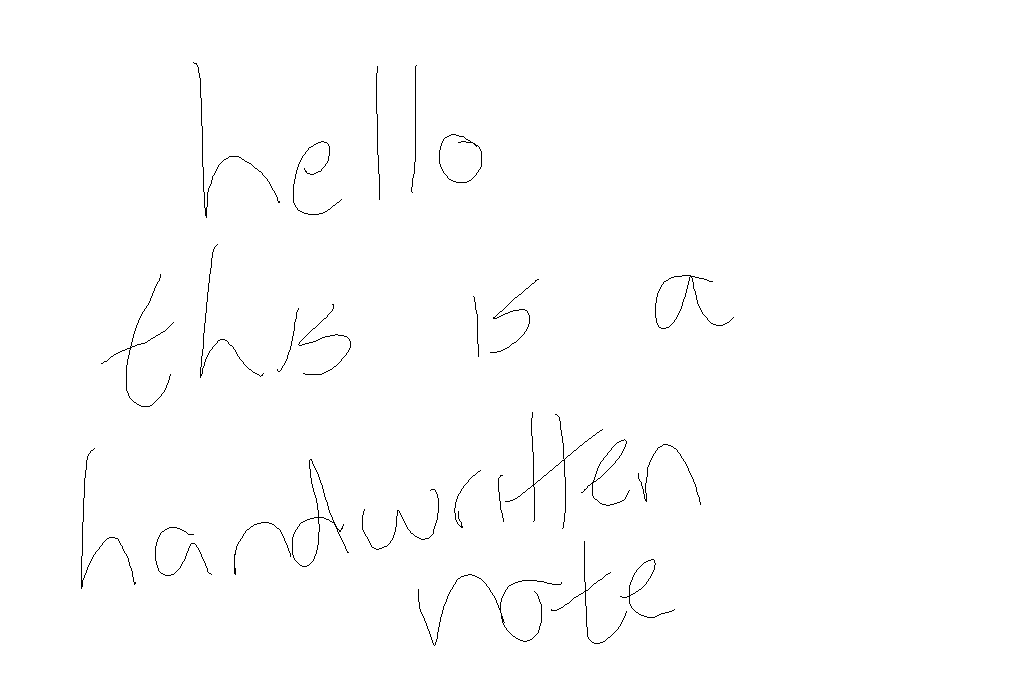 hello
this is a
handwritten
note